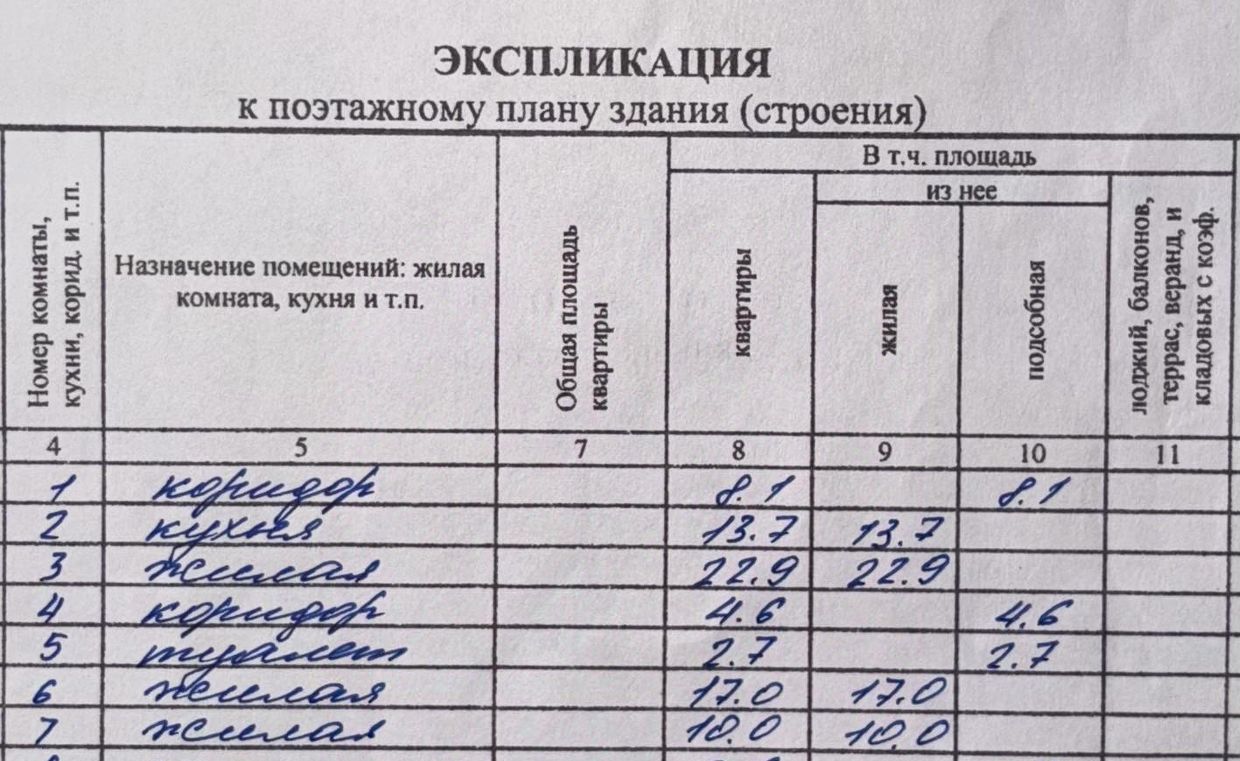 ЭКСПЛИКАЦИЯ
к поэтажному плану здания (строения)
Номер комнаты,
кухни, корид. и т.п.
Назначение помещений: жилая
комната, кухня и т.п.
Общая площадь
квартиры
В т.ч. площадь
квартиры
из нее
жилая
подсобная
лоджий, балконов,
террас, веранд, и
кладовых с коэф.
4 5 7 8 9 10 11
1 коридор 8.1 8.1
2 кухня 13.7 13.7
3 жилая 22.9 22.9
4 коридор 4.6 4.6
5 туалет 2.7 2.7
6 жилая 17.0 17.0
7 жилая 10.0 10.0